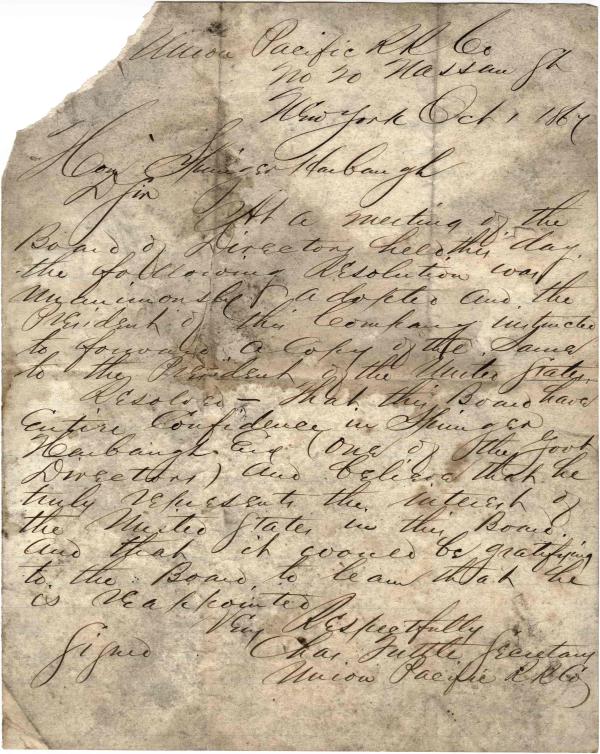 Union Pacific RR Co
No 20 Nassau St
New York Oct 1 1867
Hon Springer Harbaugh
D Sir
At a meeting of the
Board of Directors held this day
the following Resolution was
unanimously adopted and the
President of this Company instructed
to forward a Copy of the same
to the President of the United States
Resolved – That this Board have
Entire Confidence in Springer
Harbaugh Esq (one of the Govt
Directors) and believe that he
truly represents the interest of
the United States in this Board
and that it would be gratifying
to the Board to learn that he
is reappointed
Very Respectfully
Signed Chas Tuttle Secretary
Union Pacific RR Co